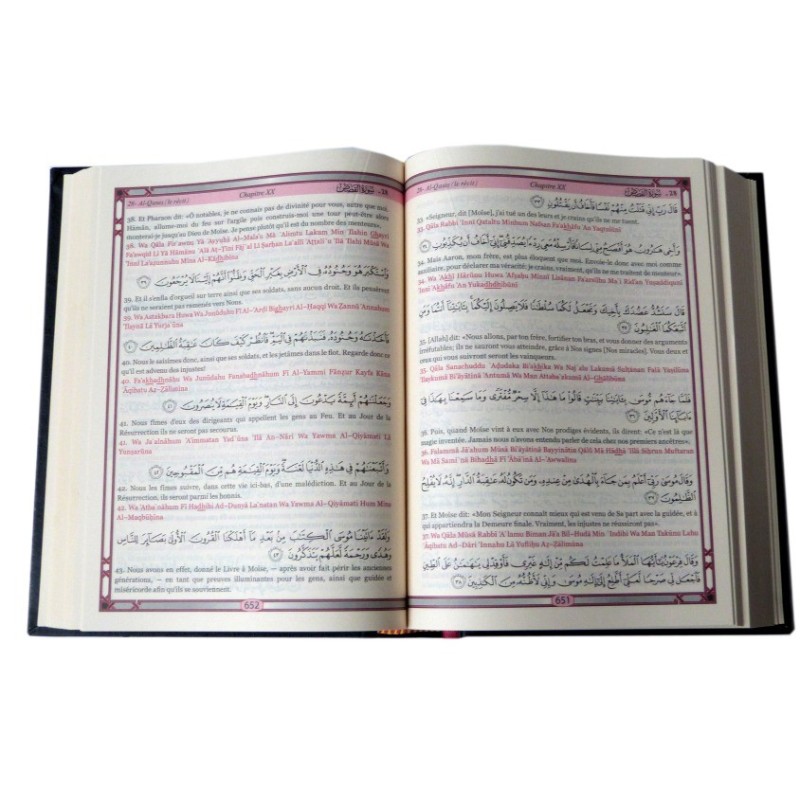 28- Al-Qasas (le récit)
Chapitre XX
سورة القصص - 28
قَالَ رَبِّ إِنِّي قَتَلْتُ مِنْهُمْ نَفْسًا فَأَخَافُ أَن يَقْتُلُونِ ٣٣
33. «Seigneur, dit [Moïse], j'ai tué un des leurs et je crains qu'ils ne me tuent.
33. Qāla Rabbi 'Innī Qataltu Minhum Nafsan Fa'akhāfu An Yaqtulūni
وَأَخِي هَٰرُونُ هُوَ أَفْصَحُ مِنِّي لِسَانًا فَأَرْسِلْهُ مَعِيَ رِدْءًا يُصَدِّقُنِي إِنِّي أَخَافُ أَن يُكَذِّبُونِ ٣٤
34. Mais Aaron, mon frère, est plus éloquent que moi. Envoie-le donc avec moi comme
auxiliaire, pour déclarer ma véracité: je crains, vraiment, qu'ils ne me traitent de menteur».
34. Wa 'Akhī Hārūnu Huwa 'Afşaĥu Minnī Lisānan Fa'arsilhu Ma`ī Rid'an Yuşaddiqunī
'Innī 'Akhāfu 'An Yukadhdhibūni
قَالَ سَنَشُدُّ عَضُدَكَ بِأَخِيكَ وَنَجْعَلُ لَكُمَا سُلْطَٰنًا فَلَا يَصِلُونَ إِلَيْكُمَا بِـَٔايَٰتِنَا أَنتُمَا وَمَنِ
ٱتَّبَعَكُمَا ٱلْغَٰلِبُونَ ٣٥
35. [Allah] dit: «Nous allons, par ton frère, fortifier ton bras, et vous donner des arguments
irréfutables; ils ne sauront vous atteindre, grâce à Nos signes [Nos miracles]. Vous deux et
ceux qui vous suivront seront les vainqueurs.
35. Qāla Sanashuddu `Ađudaka Bi'akhīka Wa Naj`alu Lakumā Sulţānan Falā Yaşilūna
'Ilaykumā Bi'āyātinā 'Antumā Wa Man Attaba`akumā Al-Ghālibūna
فَلَمَّا جَاءَهُم مُّوسَىٰ بِـَٔايَٰتِنَا بَيِّنَٰتٍ قَالُوا مَا هَٰذَا إِلَّا سِحْرٌ مُّفْتَرًى وَمَا سَمِعْنَا بِهَٰذَا فِي
ءَابَائِنَا ٱلْأَوَّلِينَ ٣٦
36. Puis, quand Moïse vint à eux avec Nos prodiges évidents, ils dirent: «Ce n'est là que
magie inventée. Jamais nous n'avons entendu parler de cela chez nos premiers ancêtres».
36. Falammā Jā'ahum Mūsá Bi'āyātinā Bayyinātin Qālū Mā Hādhā 'Illā Siĥrun Muftaran
Wa Mā Sami`nā Bihadhā Fī 'Ābā'inā Al-'Awwalīna
وَقَالَ مُوسَىٰ رَبِّي أَعْلَمُ بِمَن جَاءَ بِٱلْهُدَىٰ مِنْ عِندِهِ وَمَن تَكُونُ لَهُ عَٰقِبَةُ ٱلدَّارِ إِنَّهُ لَا يُفْلِحُ
ٱلظَّٰلِمُونَ ٣٧
37. Et Moïse dit: «Mon Seigneur connaît mieux qui est venu de Sa part avec la guidée, et à
qui appartiendra la Demeure finale. Vraiment, les injustes ne réussiront pas».
37. Wa Qāla Mūsá Rabbī 'A`lamu Biman Jā'a Bil-Hudá Min `Indihi Wa Man Takūnu Lahu
`Āqibatu Ad-Dāri 'Innahu Lā Yufliĥu Až-Žālimūna
وَقَالَ فِرْعَوْنُ يَٰأَيُّهَا ٱلْمَلَأُ مَا عَلِمْتُ لَكُم مِّنْ إِلَٰهٍ غَيْرِي فَأَوْقِدْ لِي يَٰهَٰمَٰنُ عَلَى ٱلطِّينِ
فَٱجْعَل لِّي صَرْحًا لَّعَلِّي أَطَّلِعُ إِلَىٰ إِلَٰهِ مُوسَىٰ وَإِنِّي لَأَظُنُّهُ مِنَ ٱلْكَٰذِبِينَ ٣٨
651
28- Al-Qasas (le récit)
Chapitre XX
سورة القصص - 28
38. Et Pharaon dit: «Ô notables, je ne connais pas de divinité pour vous, autre que moi.
Hāmān, allume-moi du feu sur l'argile puis construis-moi une tour peut-être alors
monterai-je jusqu'au Dieu de Moïse. Je pense plutôt qu'il est du nombre des menteurs».
38. Wa Qāla Fir`awnu Yā Ayyuhā Al-Mala'u Mā `Alimtu Lakum Min 'Ilahin Ghayrī
Fa'awqid Lī Yā Hāmānu `Alá Aţ-Ţīni Fāj`al Lī Şarĥan La`allī 'Aţţali`u 'Ilá 'Ilahi Mūsá Wa
'Innī La'ažunnuhu Mina Al-Kādhibīna
وَٱسْتَكْبَرَ هُوَ وَجُنُودُهُ فِي ٱلْأَرْضِ بِغَيْرِ ٱلْحَقِّ وَظَنُّوا أَنَّهُمْ إِلَيْنَا لَا يُرْجَعُونَ ٣٩
39. Et il s'enfla d'orgueil sur terre ainsi que ses soldats, sans aucun droit. Et ils pensèrent
qu'ils ne seraient pas ramenés vers Nous.
39. Wa Astakbara Huwa Wa Junūduhu Fī Al-'Arđi Bighayri Al-Ĥaqqi Wa Žannū 'Annahum
'Ilaynā Lā Yurja`ūna
فَأَخَذْنَٰهُ وَجُنُودَهُ فَنَبَذْنَٰهُمْ فِي ٱلْيَمِّ فَٱنظُرْ كَيْفَ كَانَ عَٰقِبَةُ ٱلظَّٰلِمِينَ ٤٠
40. Nous le saisîmes donc, ainsi que ses soldats, et les jetâmes dans le flot. Regarde donc ce
qu'il est advenu des injustes!
40. Fa'akhadhnāhu Wa Junūdahu Fanabadhnāhum Fī Al-Yammi Fānžur Kayfa Kāna
`Āqibatu Až-Žālimīna
وَجَعَلْنَٰهُمْ أَئِمَّةً يَدْعُونَ إِلَى ٱلنَّارِ وَيَوْمَ ٱلْقِيَٰمَةِ لَا يُنصَرُونَ ٤١
41. Nous fîmes d'eux des dirigeants qui appellent les gens au Feu. Et au Jour de la
Résurrection ils ne seront pas secourus.
41. Wa Ja`alnāhum 'A'immatan Yad`ūna 'Ilá An-Nāri Wa Yawma Al-Qiyāmati Lā
Yunşarūna
وَأَتْبَعْنَٰهُمْ فِي هَٰذِهِ ٱلدُّنْيَا لَعْنَةً وَيَوْمَ ٱلْقِيَٰمَةِ هُم مِّنَ ٱلْمَقْبُوحِينَ ٤٢
42. Nous les fîmes suivre, dans cette vie ici-bas, d'une malédiction. Et au Jour de la
Résurrection, ils seront parmi les honnis.
42. Wa 'Atba`nāhum Fī Hadhihi Ad-Dunyā La`natan Wa Yawma Al-Qiyāmati Hum Mina
Al-Maqbūĥīna
وَلَقَدْ ءَاتَيْنَا مُوسَى ٱلْكِتَٰبَ مِن بَعْدِ مَا أَهْلَكْنَا ٱلْقُرُونَ ٱلْأُولَىٰ بَصَائِرَ لِلنَّاسِ
وَهُدًى وَرَحْمَةً لَّعَلَّهُمْ يَتَذَكَّرُونَ ٤٣
43. Nous avons en effet, donné le Livre à Moïse, – après avoir fait périr les anciennes
générations, – en tant que preuves illuminantes pour les gens, ainsi que guidée et
miséricorde afin qu'ils se souviennent.
652